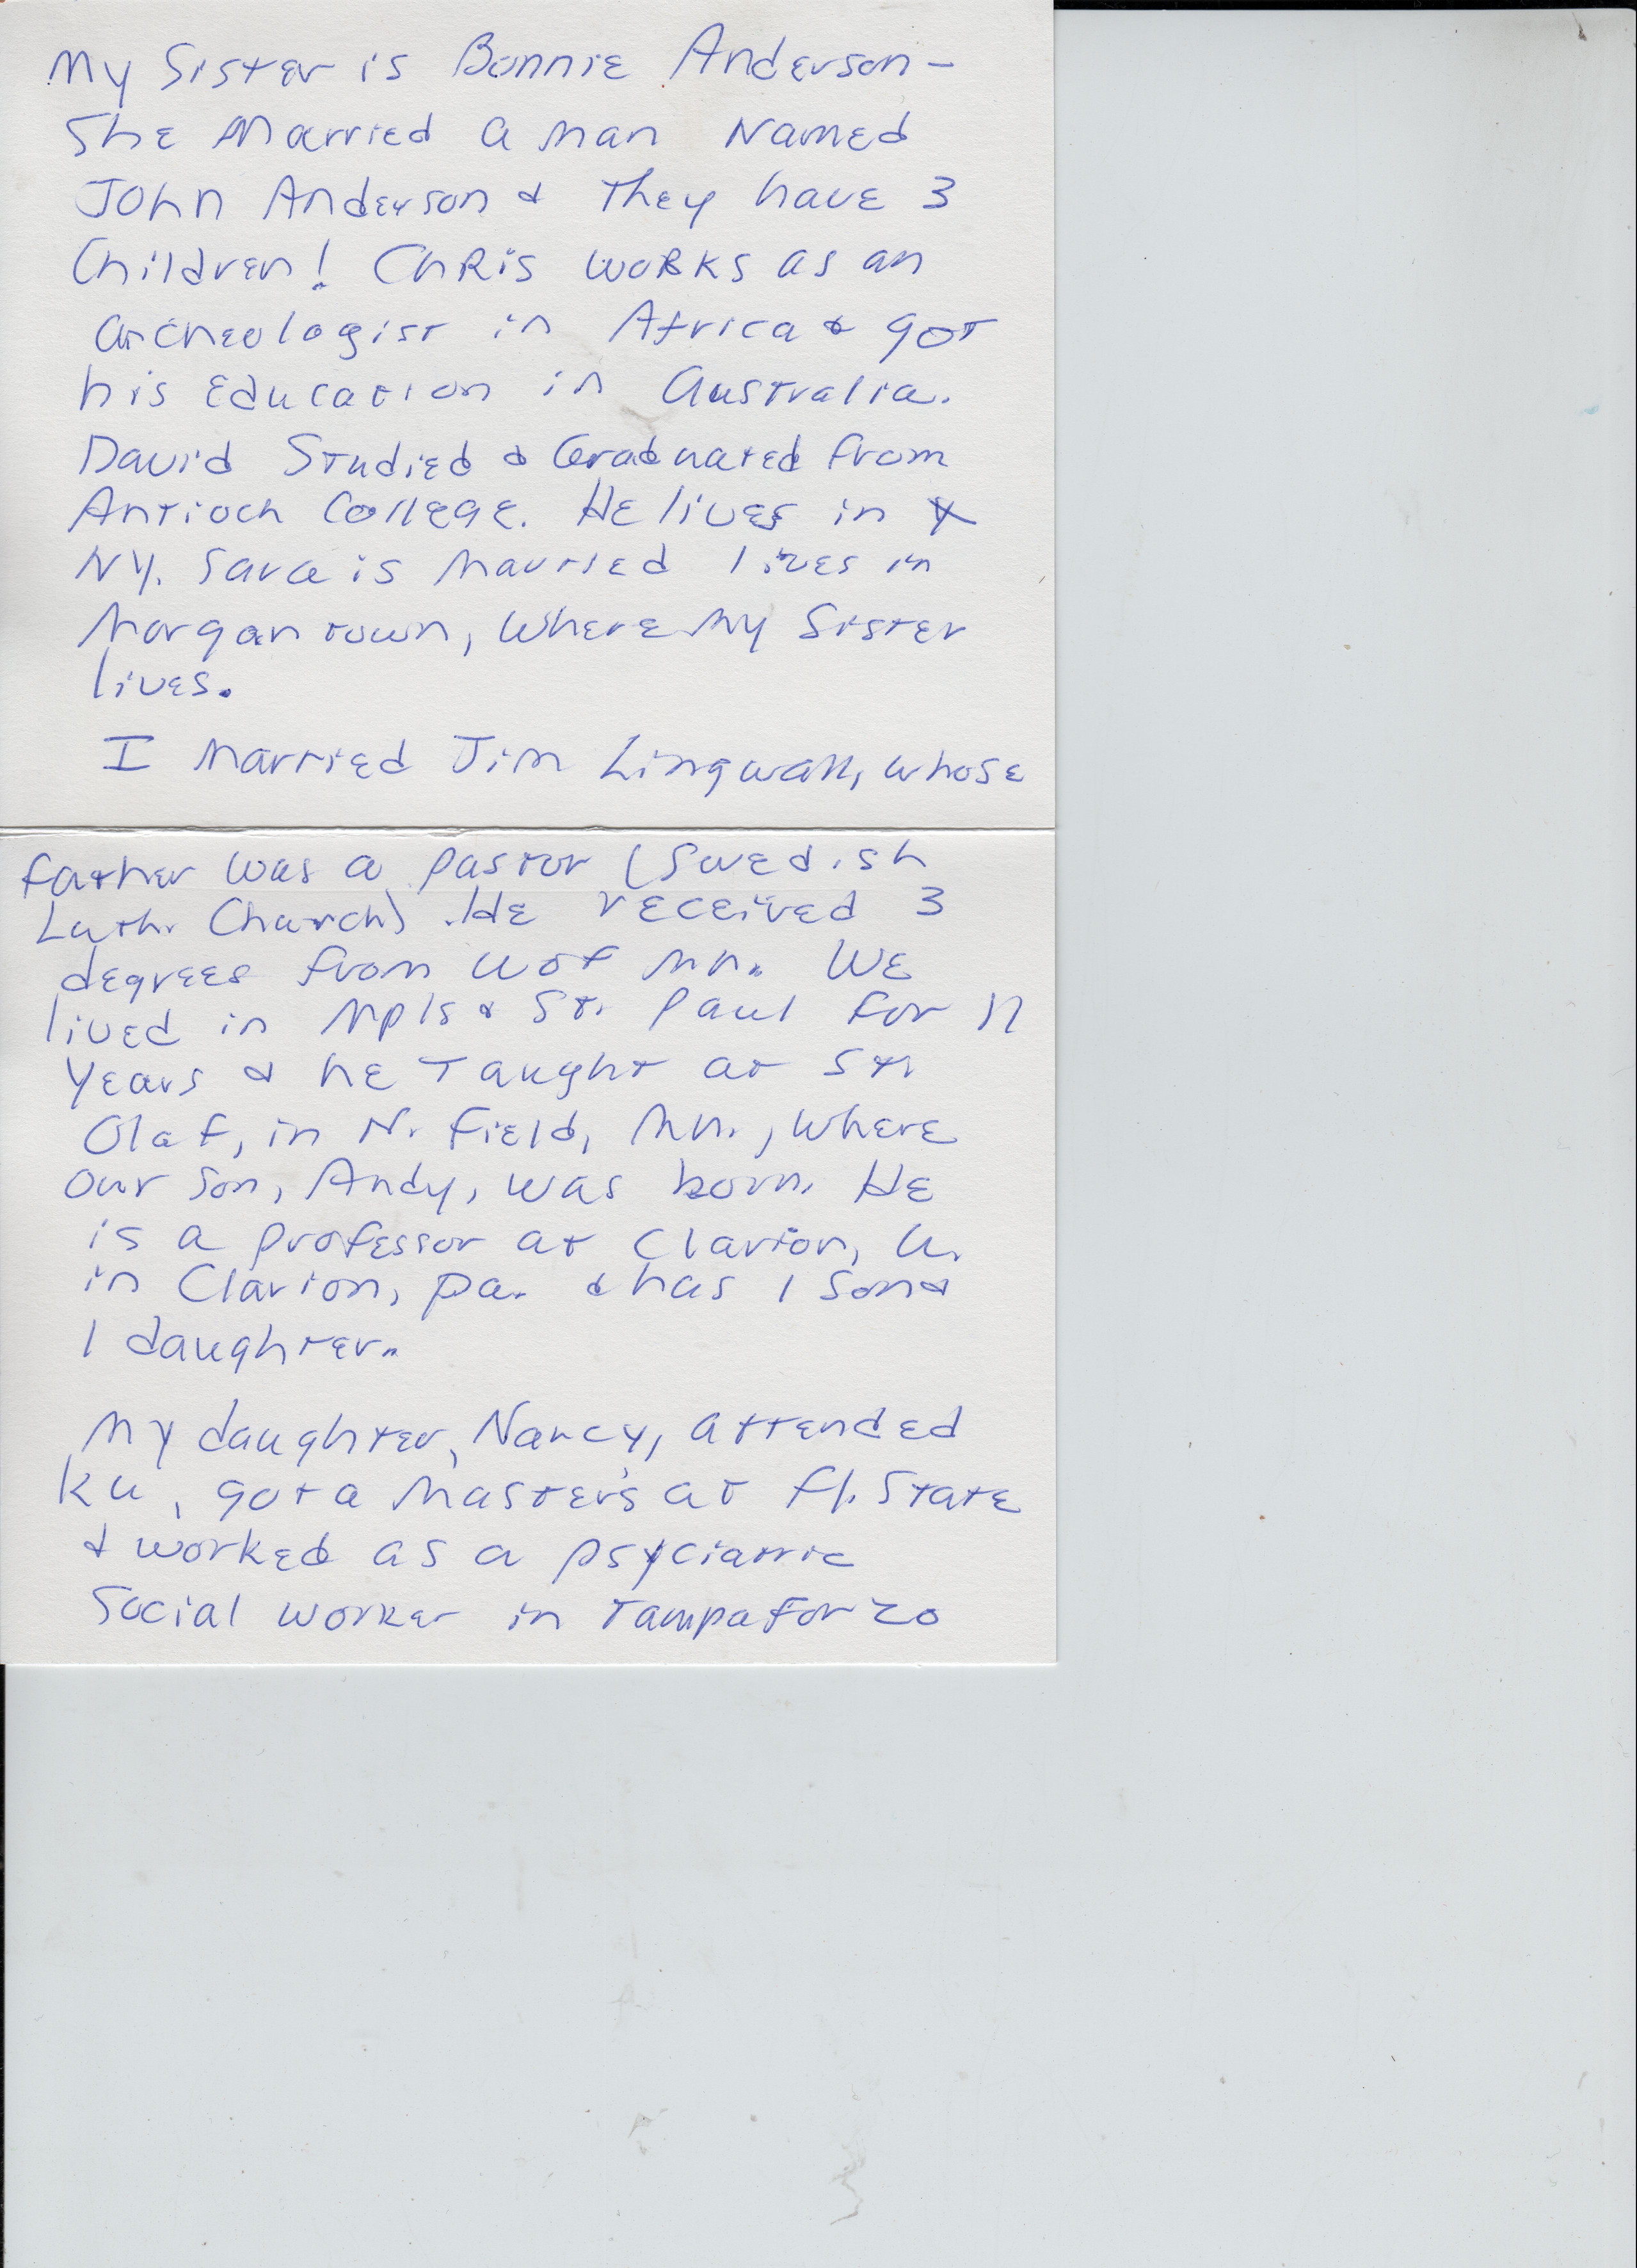 My Sister is Bonnie Anderson -
She Married a man Named
John Anderson & They have 3
Children! Chris works as an
archeologist in Africa & got
his Education in Australia.
David Studied & Graduated from
Antioch College. He lives in
NY. Sara is Married lives in
Morgantown, Where My Sister
lives.
I Married Jim Lingwall, whose
father was a pastor (Swedish
Luth. Church). He received 3
degrees from U of Mn. We
lived in Mpls & St. Paul for
years & he Taught at St.
Olaf, in N. Field, Mn., Where
our Son, Andy, was born. He
is a professor at Clarion, U.
in Clarion, Pa. & has 1 Son &
1 daughter.
My daughter, Nancy, attended
KU, got a Master's at Fl. State
& worked as a psyciatric
Social Worker in Tampa For 20